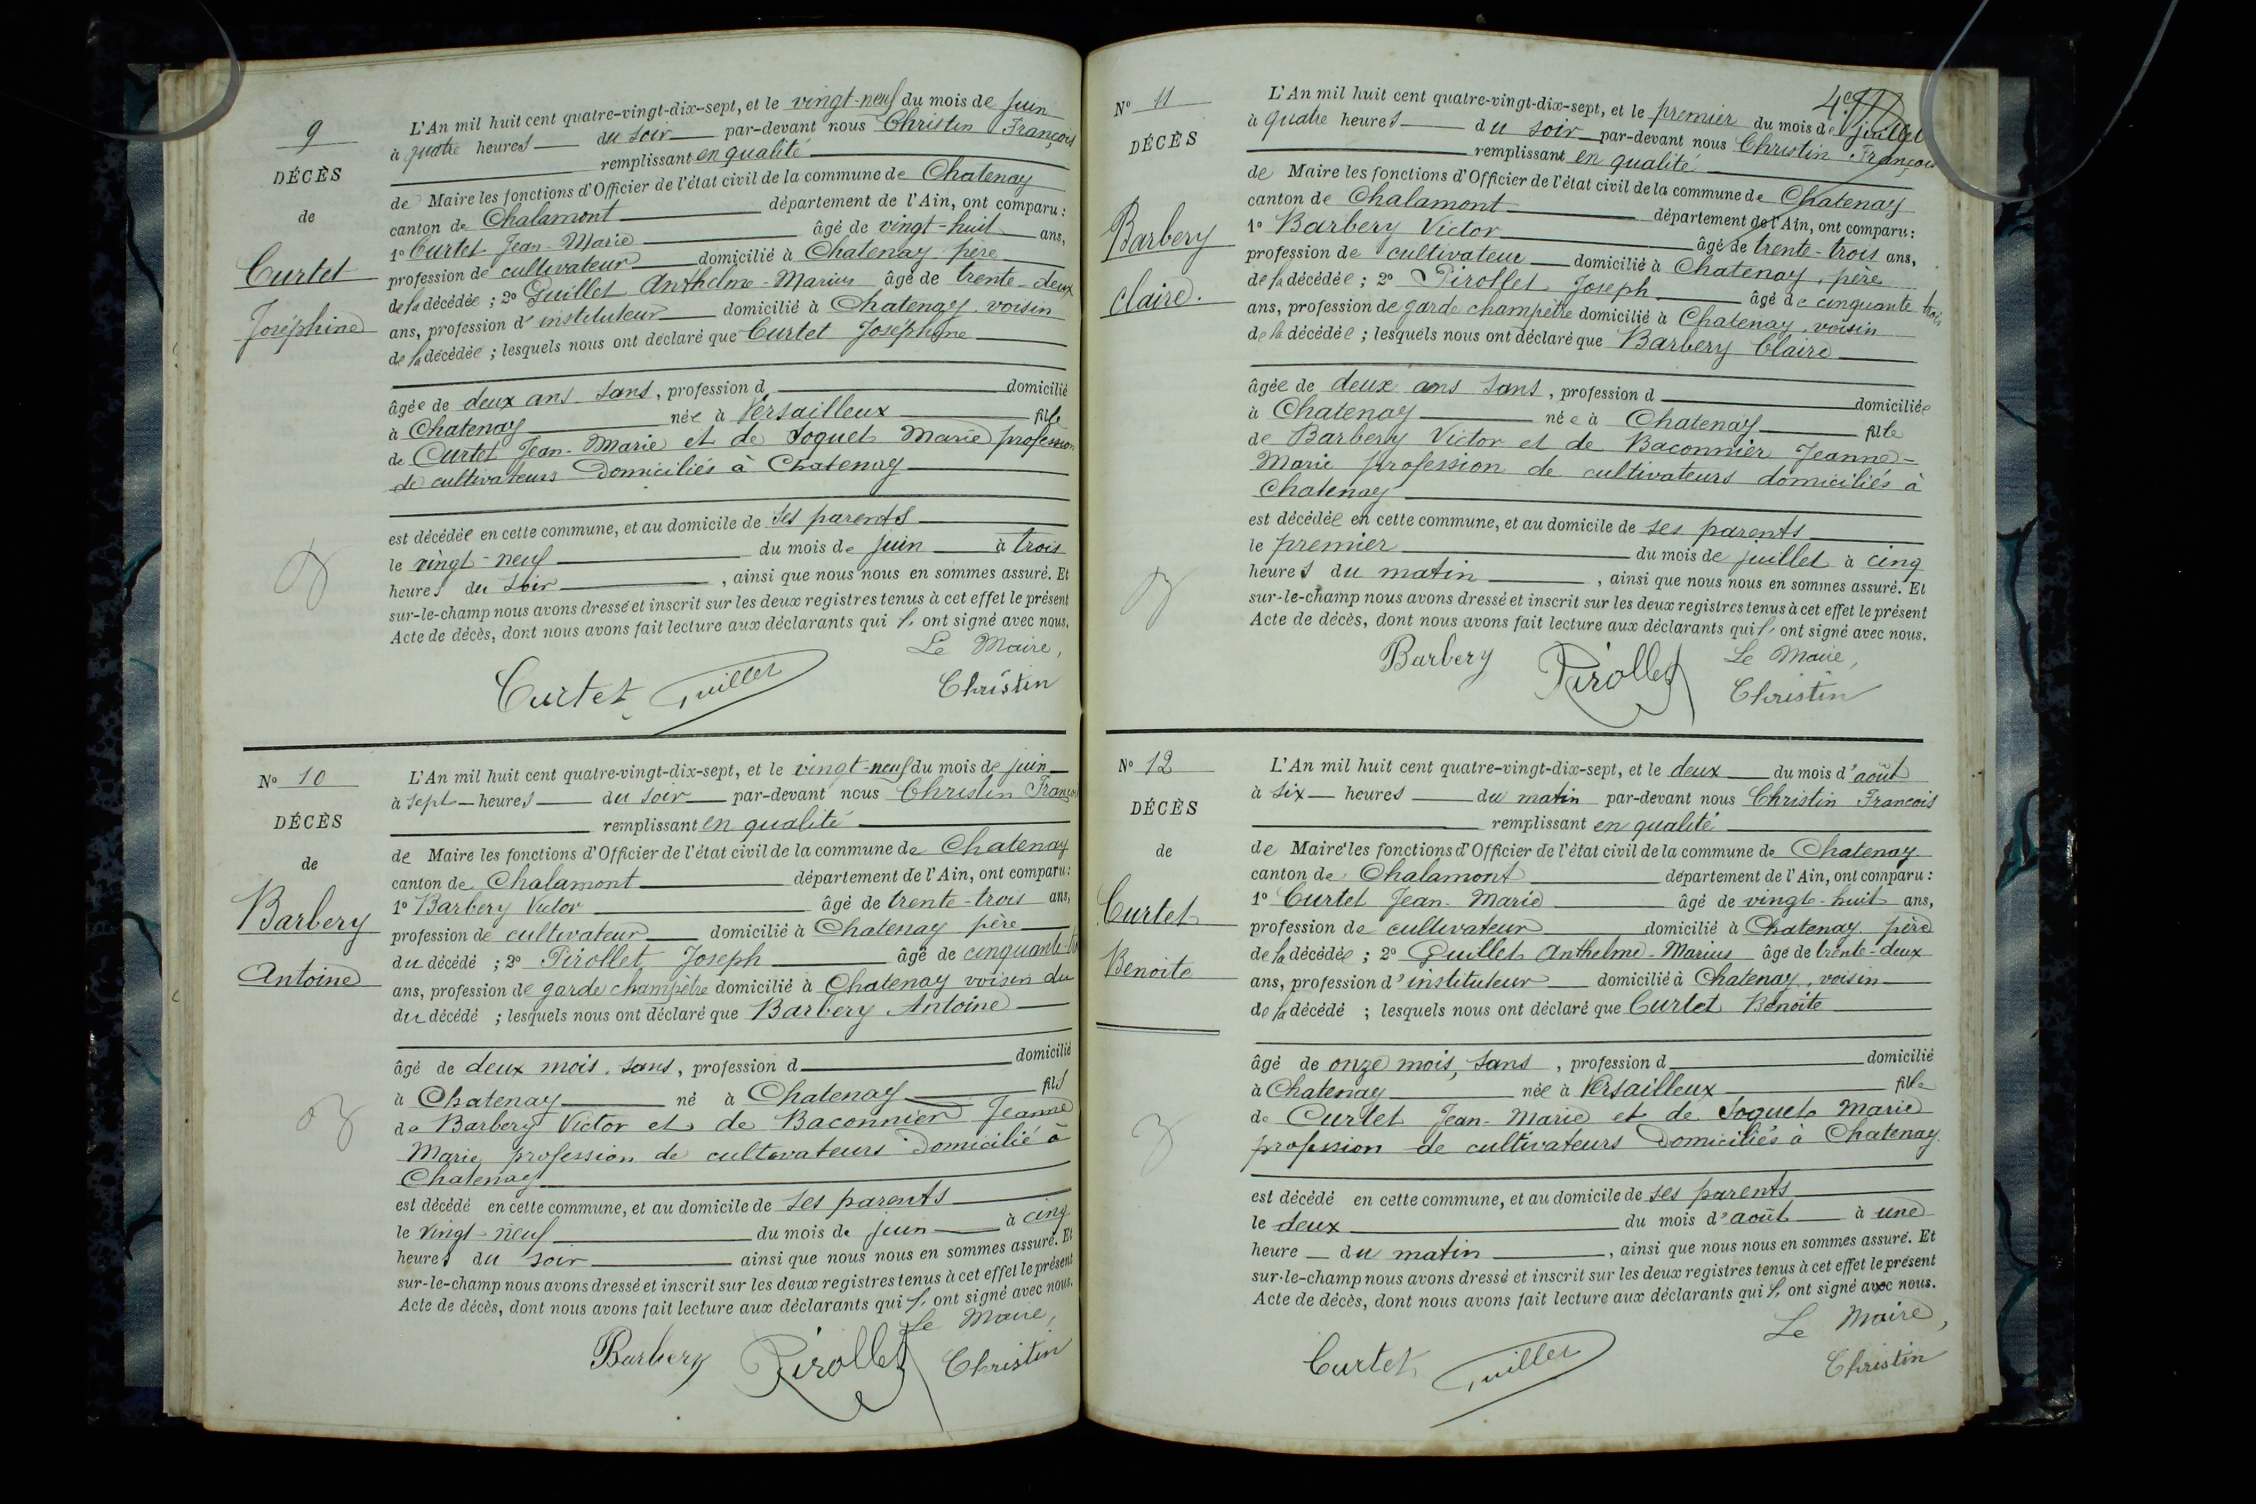 9
DÉCÈS
de
Curtet
Joséphine
L'An mil huit cent quatre-vingt-dix-sept, et le vingt-neuf du mois de juin
à quatre heures du soir par-devant nous Christin François
remplissant en qualité
de Maire les fonctions d'Officier de l'état civil de la commune de Chatenay
canton de Chalamont département de l'Ain, ont comparu :
1º Curtet Jean-Marie âgé de vingt-huit ans,
profession de cultivateur domicilié à Chatenay père
de la décédée ; 2º Guillet Anthelme-Marius âgé de trente-deux
ans, profession d'instituteur domicilié à Chatenay, voisin
de la décédée ; lesquels nous ont déclaré que Curtet Joséphine
âgée de deux ans sans, profession d domicilié
à Chatenay née à Versailleux fille
de Curtet Jean-Marie et de Soquet Marie profession
de cultivateurs Domiciliés à Chatenay
est décédée en cette commune, et au domicile de ses parents
le vingt-neuf du mois de juin à trois
heures du soir, ainsi que nous nous en sommes assuré. Et
sur-le-champ nous avons dressé et inscrit sur les deux registres tenus à cet effet le présent
Acte de décès, dont nous avons fait lecture aux déclarants qui ont signé avec nous.
Le Maire,
Curtet Guillet Christin
Nº 10
DÉCÈS
de
Barbery
Antoine
L'An mil huit cent quatre-vingt-dix-sept, et le vingt-neuf du mois de juin
à sept heures du soir par-devant nous Christin François
remplissant en qualité
de Maire les fonctions d'Officier de l'état civil de la commune de Chatenay
canton de Chalamont département de l'Ain, ont comparu :
1º Barbery Victor âgé de trente-trois ans,
profession de cultivateur domicilié à Chatenay père
du décédé ; 2º Pirollet Joseph âgé de cinquante
ans, profession de garde champêtre domicilié à Chatenay voisin du
du décédé ; lesquels nous ont déclaré que Barbery Antoine
âgé de deux mois, sans, profession d domicilié
à Chatenay né à Chatenay fils
de Barbery Victor et de Baconnier Jeanne
Marie profession de cultivateurs Domicilié à
Chatenay
est décédé en cette commune, et au domicile de ses parents
le vingt-neuf du mois de juin à cinq
heures du soir ainsi que nous nous en sommes assuré. Et
sur-le-champ nous avons dressé et inscrit sur les deux registres tenus à cet effet le présent
Acte de décès, dont nous avons fait lecture aux déclarants qui ont signé avec nous.
Le Maire,
Barbery Pirollet Christin
Nº 11
DÉCÈS
Barbery
Claire.
L'An mil huit cent quatre-vingt-dix-sept, et le premier du mois de juillet
à quatre heures du soir par-devant nous Christin François
remplissant en qualité
de Maire les fonctions d'Officier de l'état civil de la commune de Chatenay
canton de Chalamont département de l'Ain, ont comparu :
1º Barbery Victor âgé de trente-trois ans,
profession de cultivateur domicilié à Chatenay, père
de la décédée ; 2º Pirollet Joseph âgé de cinquante trois
ans, profession de garde champêtre domicilié à Chatenay, voisin
de la décédée ; lesquels nous ont déclaré que Barbery Claire
âgée de deux ans sans, profession d domiciliée
à Chatenay née à Chatenay fille
de Barbery Victor et de Baconnier Jeanne-
Marie profession de cultivateurs domiciliés à
Chatenay
est décédée en cette commune, et au domicile de ses parents
le premier du mois de juillet à cinq
heures du matin, ainsi que nous nous en sommes assuré. Et
sur-le-champ nous avons dressé et inscrit sur les deux registres tenus à cet effet le présent
Acte de décès, dont nous avons fait lecture aux déclarants qui ont signé avec nous.
Le Maire,
Barbery Pirollet Christin
Nº 12
DÉCÈS
de
Curtet
Benoite
L'An mil huit cent quatre-vingt-dix-sept, et le deux du mois d'août
à six heures du matin par-devant nous Christin François
remplissant en qualité
de Maire les fonctions d'Officier de l'état civil de la commune de Chatenay
canton de Chalamont département de l'Ain, ont comparu :
1º Curtet Jean-Marie âgé de vingt-huit ans,
profession de cultivateur domicilié à Chatenay père
de la décédée ; 2º Guillet Anthelme-Marius âgé de trente-deux
ans, profession d'instituteur domicilié à Chatenay, voisin
de la décédé ; lesquels nous ont déclaré que Curtet Benoite
âgé de onze mois, sans, profession d domicilié
à Chatenay née à Versailleux fille
de Curtet Jean-Marie et de Soquet Marie
profession de cultivateurs Domiciliés à Chatenay
est décédé en cette commune, et au domicile de ses parents
le deux du mois d'août à une
heure du matin, ainsi que nous nous en sommes assuré. Et
sur-le-champ nous avons dressé et inscrit sur les deux registres tenus à cet effet le présent
Acte de décès, dont nous avons fait lecture aux déclarants qui ont signé avec nous.
Le Maire,
Curtet Guillet Christin